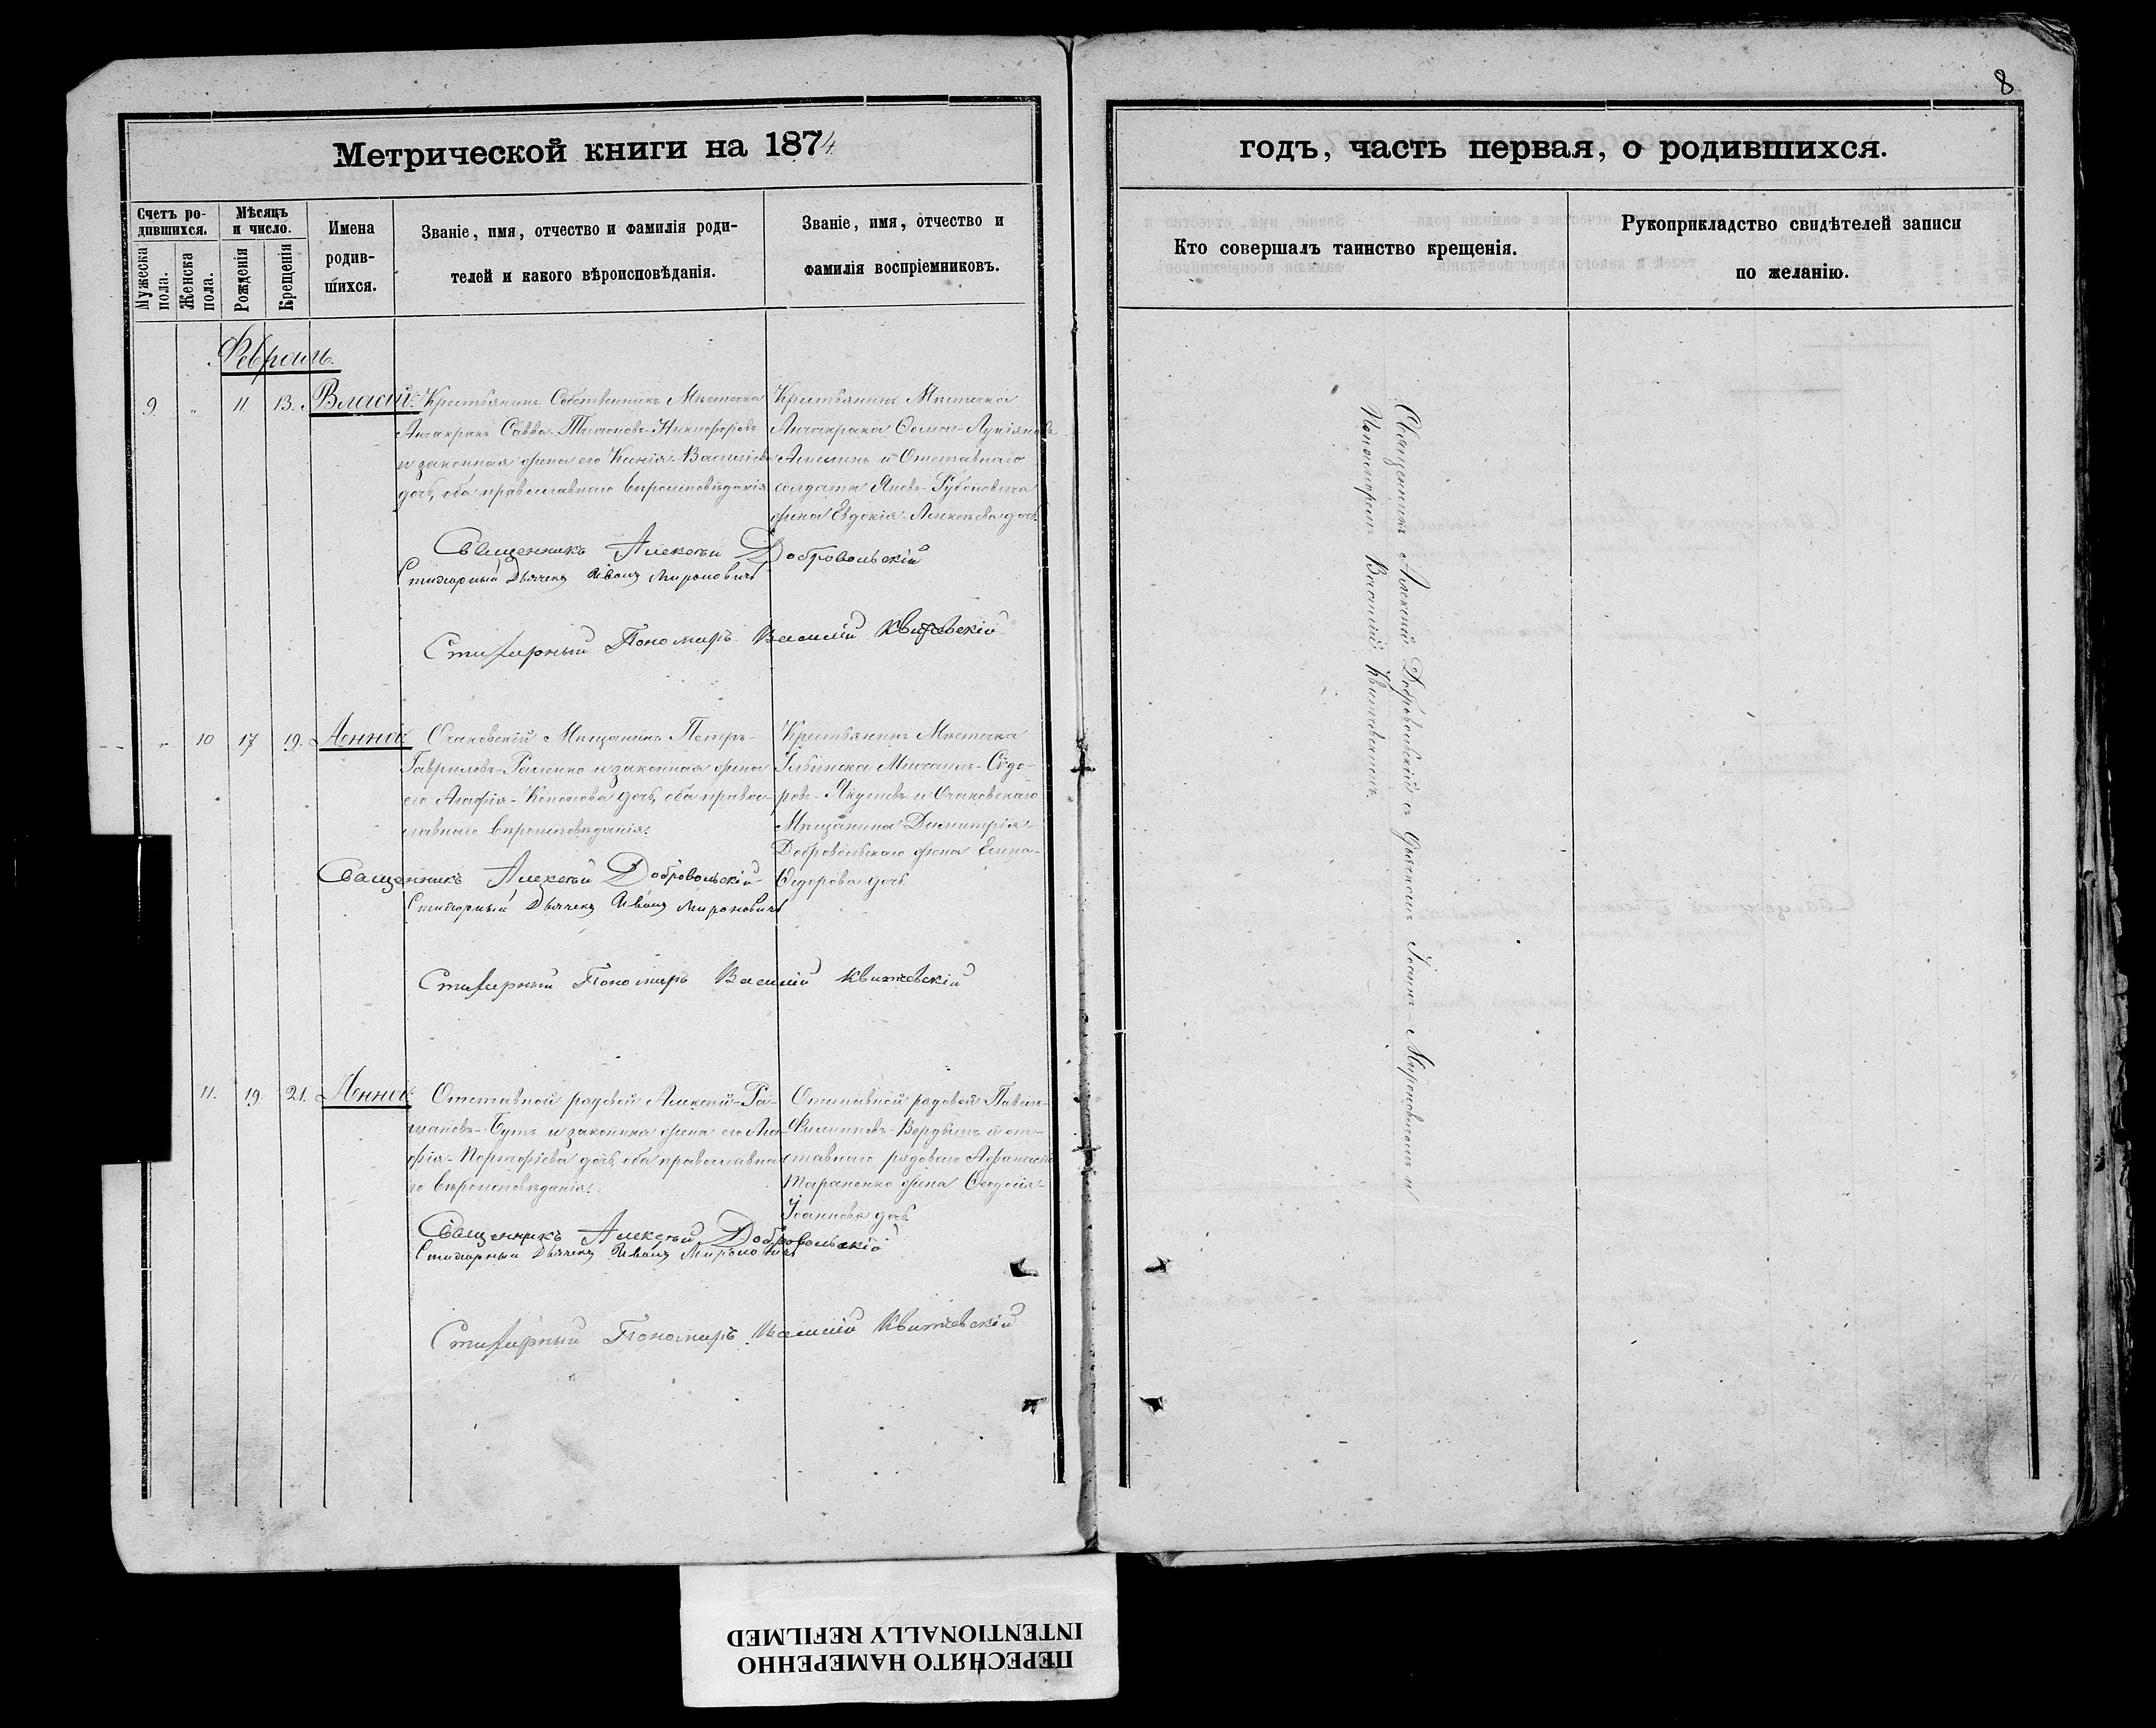 8
Метрической книги на 1874
годъ, часть первая, о родившихся.
Счетъ ро-
дившихся.
Мужеска
пола.
Женска
пола.
Мѣсяцъ
и число.
Рожденія
Крещенія
Имена
родив-
шихся.
Званіе, имя, отчество и фамилія роди-
телей и какого вѣроисповѣданія.
Званіе, имя, отчество и
фамилія воспріемниковъ.
Кто совершалъ таинство крещенія.
Рукоприкладство свидѣтелей записи
по желанію.
Февраль.
9 " 11 13. Власій.
Крестьянинъ Собственникъ Мѣстечка
Анчакракъ Савва Никифоровъ
и законная жена его Ксенія Василіева
дочь, оба православнаго вѣроисповѣданія
Крестьянинъ Мѣстечка
Анчакрака Ѳома Лукіяновъ
и Отставнаго
солдата Яковъ
жена Евдокія дочь.
Священникъ Алексѣй Добровольскій
Стихарный Дьячекъ Иванъ Мироновичъ
Стихарный Пономарь Василій Квитковскій
" 10 17 19. Анна.
Очаковскій Мѣщанинъ Петръ-
Гавриловъ и законная жена
его Агафія Кононова дочь, оба правос-
лавнаго вѣроисповѣданія.
Крестьянинъ Мѣстечка
Михаилъ Сидо-
ровъ и Очаковскаго
Мѣщанина Димитрія
Добровольскаго жена Елена
Ѳедорова дочь.
Священникъ Алексѣй Добровольскій
Стихарный Дьячекъ Иванъ Мироновичъ
Стихарный Пономарь Василій Квитковскій
11. 19. 21. Анна.
Отставной рядовой Алексѣй Ро-
мановъ Бутъ и законная жена его Ага-
фія дочь, оба православна-
го вѣроисповѣданія.
Отставной рядовой Павелъ
Филипповъ и от-
ставнаго рядоваго Афанасія
Тараненко жена Ѳеодосія
Іоаннова дочь.
Священникъ Алексѣй Добровольскій
Стихарный Дьячекъ Иванъ Мироновичъ
Стихарный Пономарь Василій Квитковскій
Священникъ Алексѣй Добровольскій съ Дьячкомъ Іоанномъ Мироновичемъ и
Пономаремъ Василіемъ Квитковскимъ.
ПЕРЕСНЯТО НАМЕРЕННО
INTENTIONALLY REFILMED